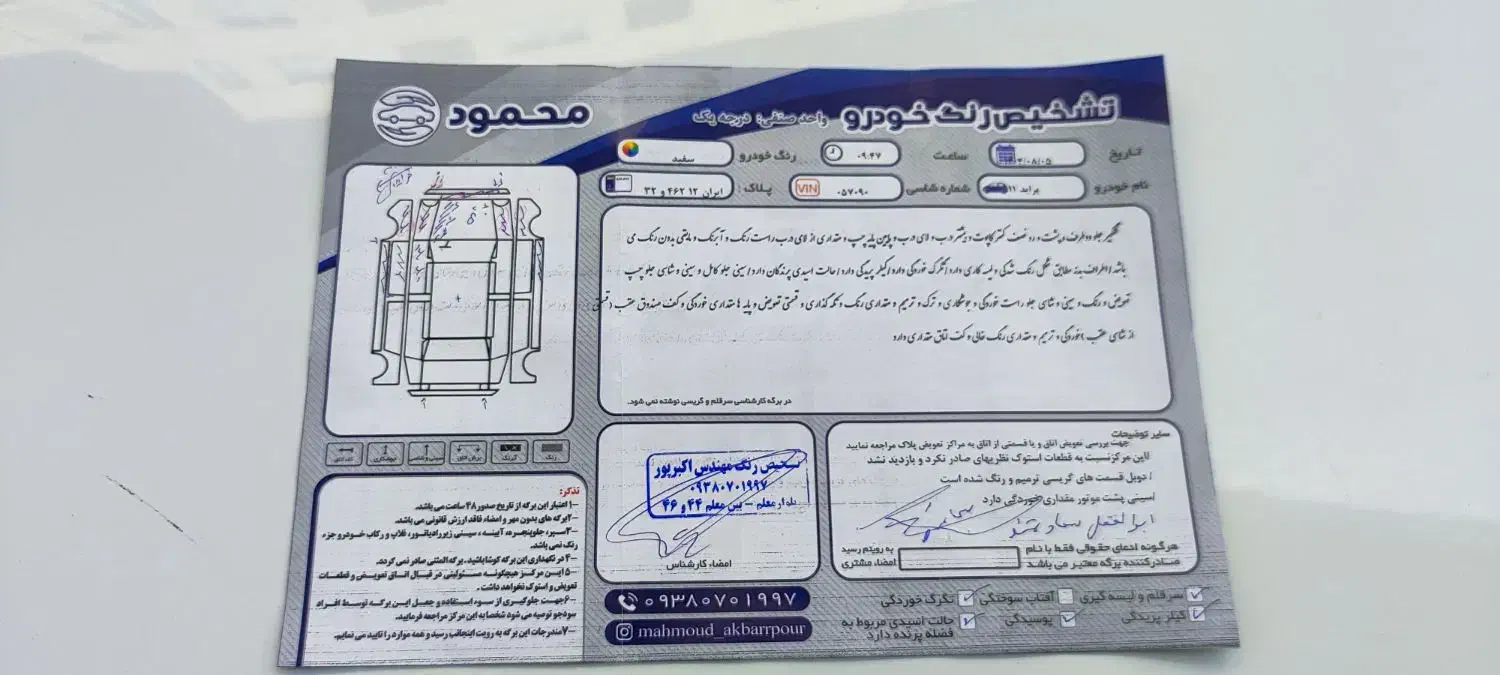 تشخیص رنگ خودرو واحد صنفی: درجه یک
محمود
تاریخ
ساعت ۰۹:۴۷
رنگ خودرو سفید
نام خودرو پراید ۱۱۱
شماره شاسی VIN ۰۵۷۰۹۰
پلاک: ایران ۱۲ ۴۶۲ و ۳۲
گلگیر جلو دو طرف و پشت و رو نصف کمتر کاپوت و بیشتر درب و لای درب و پایین پایه چپ و مقداری از لای درب راست رنگ و آبرنگ و مابقی بدون رنگ می
باشد / اطراف بدنه مطابق شکل رنگ شدگی و لیسه کاری دارد / تگرگ خوردگی دارد / کیلر پریدگی دارد / حالت اسیدی پرندگان دارد / سینی جلو کامل و سینی و شاسی جلو چپ
تعویض و رنگ و سینی و شاسی جلو راست خوردگی و جوشکاری و ترک و ترمیم و مقداری رنگ و تکه گذاری و قسمتی تعویض و پایه ها مقداری خوردگی و کف صندوق عقب (قسمتی
از شاسی عقب) خوردگی و ترمیم و مقداری رنگ خالی و کف اتاق مقداری دارد
در برگه کارشناسی سرقلم و گریسی نوشته نمی شود.
رنگ
آبرنگ
برش اتاق
سینی و شاسی
جوشکاری
تذکر:
۱-اعتبار این برگه از تاریخ صدور ۴۸ ساعت می باشد.
۲-برگه های بدون مهر و امضاء فاقد ارزش قانونی می باشد.
۳-سپر، جلوپنجره، آیینه، سینی زیر رادیاتور، قلاب و رکاب خودرو جزء
رنگ نمی باشد.
۴-در نگهداری این برگه کوشا باشید. برگه المثنی صادر نمی گردد.
۵-این مرکز هیچگونه مسئولیتی در قبال اتاق تعویض و قطعات
تعویض و استوک نخواهد داشت.
۶-جهت جلوگیری از سوء استفاده و جعل این برگه توسط افراد
سودجو توصیه می شود شخصا به این مرکز مراجعه فرمایید.
۷-مندرجات این برگه به رویت اینجانب رسید و همه موارد را تایید می نمایم.
تشخیص رنگ مهندس اکبرپور
۰۹۳۸۰۷۰۱۹۹۷
بلوار معلم - بین معلم ۴۴ و ۴۶
امضاء کارشناس
سایر توضیحات
جهت بررسی تعویض اتاق و یا قسمتی از اتاق به مراکز تعویض پلاک مراجعه نمایید
لاین مرکز نسبت به قطعات استوک نظریهای صادر نکرد و بازدید نشد
/ دوبل قسمت های گریسی ترمیم و رنگ شده است
/سینی پشت موتور مقداری خوردگی دارد
هرگونه ادعای حقوقی فقط با نام
صادرکننده برگه معتبر می باشد
به رویتم رسید
امضاء مشتری
سرقلم و لیسه گیری
آفتاب سوختگی
تگرگ خوردگی
کیلر پریدگی
پوسیدگی
حالت اسیدی مربوط به
فضله پرنده دارد
۰۹۳۸۰۷۰۱۹۹۷
mahmoud_akbarrpour